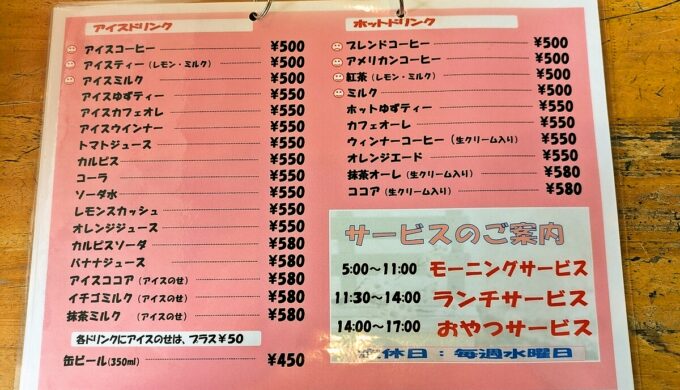 アイスドリンク
アイスコーヒー ¥500
アイスティー (レモン・ミルク) ¥500
アイスミルク ¥500
アイスゆずティー ¥550
アイスカフェオレ ¥550
アイスウインナー ¥550
トマトジュース ¥550
カルピス ¥550
コーラ ¥550
ソーダ水 ¥550
レモンスカッシュ ¥550
オレンジジュース ¥550
カルピスソーダ ¥580
バナナジュース ¥580
アイスココア (アイスのせ) ¥580
イチゴミルク (アイスのせ) ¥580
抹茶ミルク (アイスのせ) ¥580
各ドリンクにアイスのせは、プラス¥50
缶ビール(350ml) ¥450
ホットドリンク
ブレンドコーヒー ¥500
アメリカンコーヒー ¥500
紅茶 (レモン・ミルク) ¥500
ミルク ¥500
ホットゆずティー ¥550
カフェオーレ ¥550
ウィンナーコーヒー (生クリーム入り) ¥550
オレンジエード ¥550
抹茶オーレ (生クリーム入り) ¥580
ココア (生クリーム入り) ¥580
サービスのご案内
5:00〜11:00 モーニングサービス
11:30〜14:00 ランチサービス
14:00〜17:00 おやつサービス
定休日:毎週水曜日